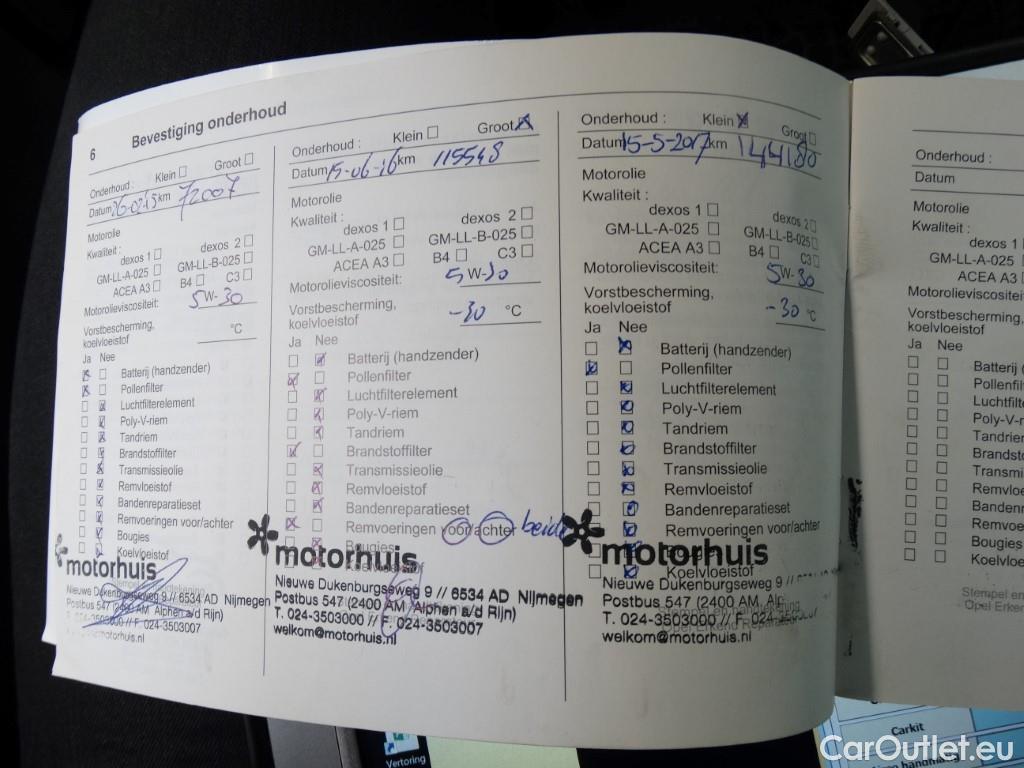 6 Bevestiging onderhoud
Onderhoud : Klein Groot
Datum km 72007
Motorolie
Kwaliteit :
dexos 1 dexos 2
GM-LL-A-025 GM-LL-B-025
ACEA A3 B4 C3
Motorolieviscositeit:
5W-30
Vorstbescherming,
koelvloeistof °C
Ja Nee
Batterij (handzender)
Pollenfilter
Luchtfilterelement
Poly-V-riem
Tandriem
Brandstoffilter
Transmissieolie
Remvloeistof
Bandenreparatieset
Remvoeringen voor/achter
Bougies
Koelvloeistof
motorhuis
Nieuwe Dukenburgseweg 9 // 6534 AD Nijmegen
Postbus 547 (2400 AM Alphen a/d Rijn)
T. 024-3503000 // F. 024-3503007
welkom@motorhuis.nl
Onderhoud : Klein Groot
Datum 15-06-16 km 115548
Motorolie
Kwaliteit :
dexos 1 dexos 2
GM-LL-A-025 GM-LL-B-025
ACEA A3 B4 C3
Motorolieviscositeit:
5W-30
Vorstbescherming,
koelvloeistof -30 °C
Ja Nee
Batterij (handzender)
Pollenfilter
Luchtfilterelement
Poly-V-riem
Tandriem
Brandstoffilter
Transmissieolie
Remvloeistof
Bandenreparatieset
Remvoeringen voor/achter beide
Bougies
motorhuis
Nieuwe Dukenburgseweg 9 // 6534 AD Nijmegen
Postbus 547 (2400 AM Alphen a/d Rijn)
T. 024-3503000 // F. 024-3503007
welkom@motorhuis.nl
Onderhoud : Klein Groot
Datum 15-5-2017 km 144180
Motorolie
Kwaliteit :
dexos 1 dexos 2
GM-LL-A-025 GM-LL-B-025
ACEA A3 B4 C3
Motorolieviscositeit:
5W-30
Vorstbescherming,
koelvloeistof -30 °C
Ja Nee
Batterij (handzender)
Pollenfilter
Luchtfilterelement
Poly-V-riem
Tandriem
Brandstoffilter
Transmissieolie
Remvloeistof
Bandenreparatieset
Remvoeringen voor/achter
motorhuis
Koelvloeistof
Nieuwe Dukenburgseweg 9 //
Postbus 547 (2400 AM, Alp
T. 024-3503000 // F. 024-350
welkom@motorhuis.nl
Onderhoud :
Datum
Motorolie
Kwaliteit :
dexos 1
GM-LL-A-025
ACEA A3
Motorolieviscositei
Vorstbescherming,
koelvloeistof
Ja Nee
Batterij (
Pollenfilt
Luchtfilte
Poly-V-r
Tandrie
Brandsto
Transmi
Remvloe
Bandenr
Remvoe
Bougies
Koelvloe
Stempel en
Opel Erken
Carkit
Vertoring
CarOutlet.eu